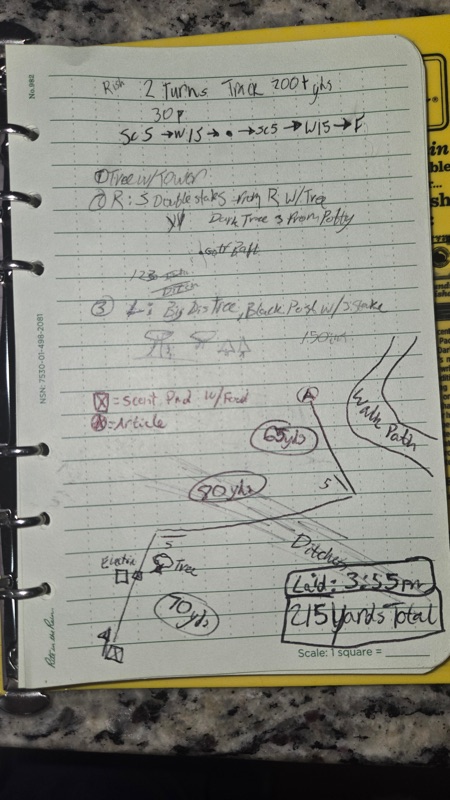 No. 982
Rish 2 Turns Track 200+ yds
30 P
Sc5 → W/5 → • → sc5 → W/5 → F
① Tree w/Tower
② R: 3 Double stakes from R W/Tree
Dark Tree 3 From Potty
③ L: Big Dis Tree, Black Patch W/3 stake
NSN: 7530-01-498-2081
X = Scent Pad W/Food
A = Article
A
65 yds
Walk Path
5
80 yds
Ditches
5
Electric
Tree
70 yds
Laid: 3:55 pm
215 Yards Total
Scale: 1 square =
Rite in the Rain